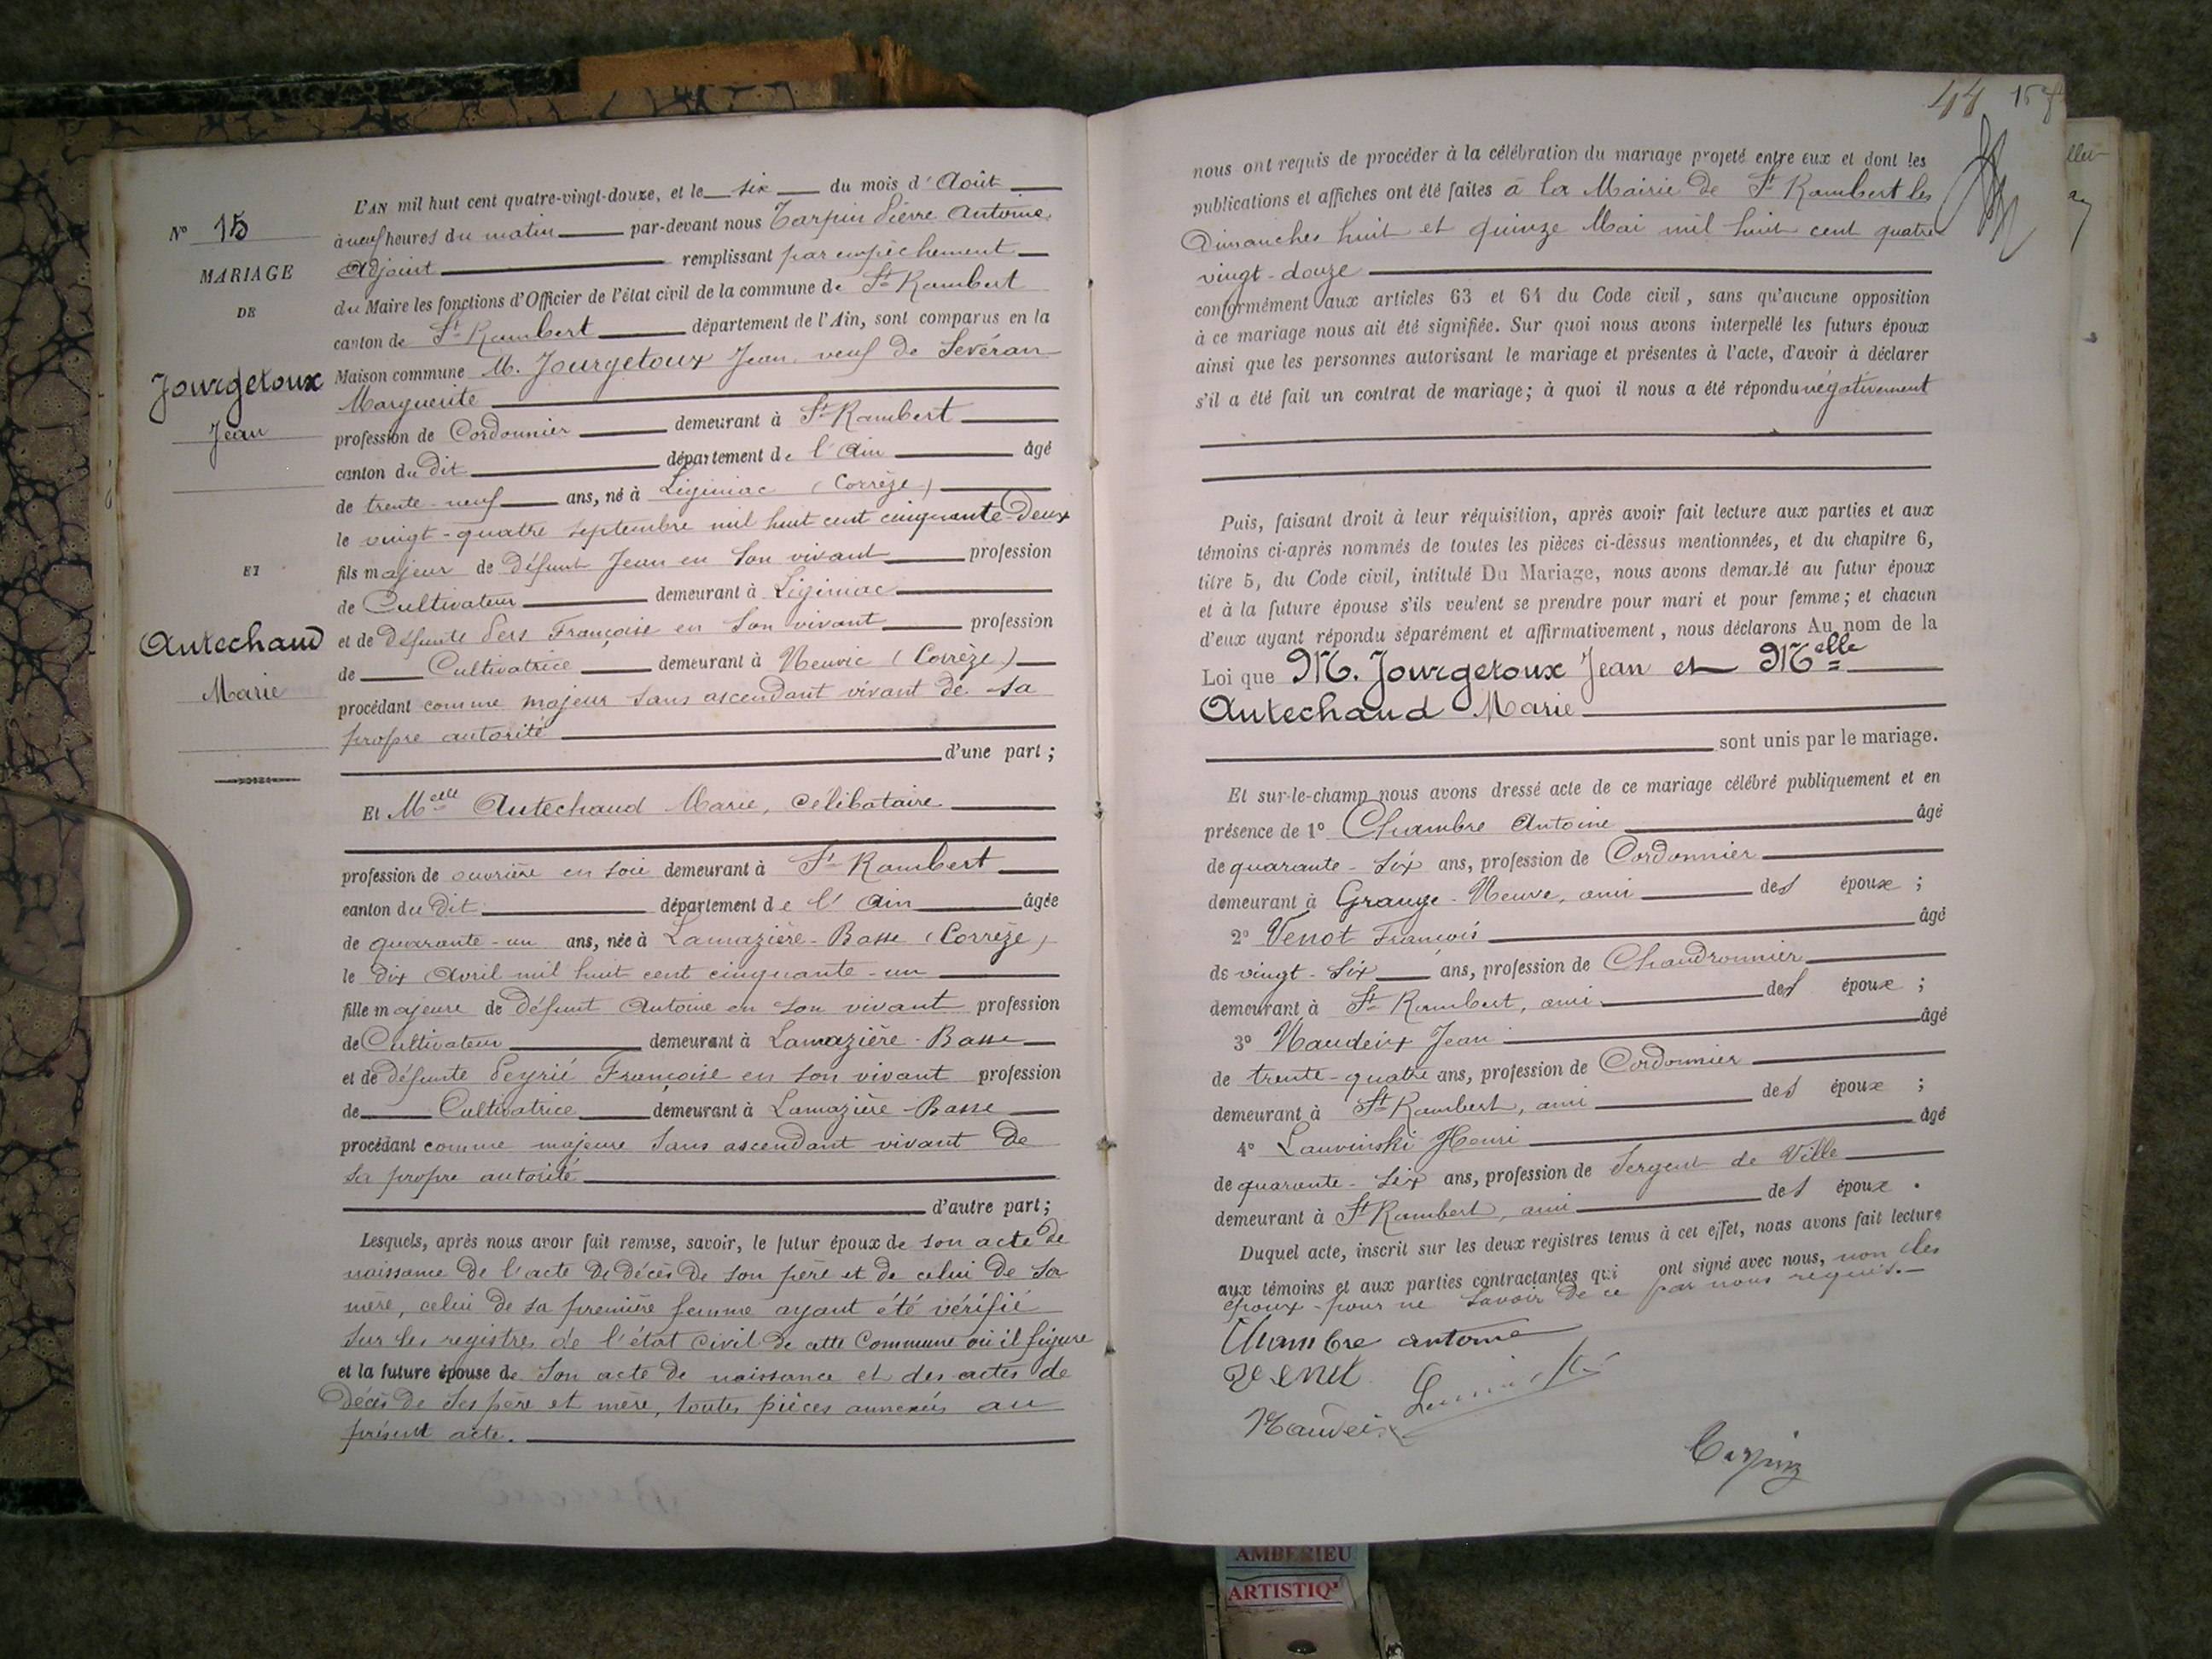 N° 15
MARIAGE
DE
Jourgetoux
Jean
ET
Autechaud
Marie
L'AN mil huit cent quatre-vingt-douze, et le six du mois d'Août
à neuf heures du matin par-devant nous Tarpin Pierre Antoine
Adjoint remplissant par empêchement
du Maire les fonctions d'Officier de l'état civil de la commune de St Rambert
canton de St Rambert département de l'Ain, sont comparus en la
Maison commune M. Jourgetoux Jean, veuf de Sevéran
Marguerite
profession de Cordonnier demeurant à St Rambert
canton du dit département de l'Ain âgé
de trente-neuf ans, né à Liginiac (Corrèze)
le vingt-quatre septembre mil huit cent cinquante-deux
fils majeur de défunt Jean en son vivant profession
de Cultivateur demeurant à Liginiac
et de défunte Pers Françoise en son vivant profession
de Cultivatrice demeurant à Neuvic (Corrèze)
procédant comme majeur sans ascendant vivant de sa
propre autorité
d'une part ;
Et Melle Autechaud Marie, célibataire
profession de ouvrière en soie demeurant à St Rambert
canton du dit département de l'Ain âgée
de quarante-un ans, née à Lamazière-Basse (Corrèze)
le dix Avril mil huit cent cinquante-un
fille majeure de défunt Antoine en son vivant profession
de Cultivateur demeurant à Lamazière-Basse
et de défunte Peyrié Françoise en son vivant profession
de Cultivatrice demeurant à Lamazière-Basse
procédant comme majeure sans ascendant vivant de
sa propre autorité
d'autre part ;
Lesquels, après nous avoir fait remise, savoir, le futur époux de son acte de
naissance de l'acte de décès de son père et de celui de sa
mère, celui de sa première femme ayant été vérifié
sur les registres de l'état civil de cette Commune où il figure
et la future épouse de son acte de naissance et des actes de
décès de ses père et mère, toutes pièces annexées au
présent acte.
44
nous ont requis de procéder à la célébration du mariage projeté entre eux et dont les
publications et affiches ont été faites à la Mairie de St Rambert les
Dimanches huit et quinze Mai mil huit cent quatre
vingt-douze
conformément aux articles 63 et 64 du Code civil, sans qu'aucune opposition
à ce mariage nous ait été signifiée. Sur quoi nous avons interpellé les futurs époux
ainsi que les personnes autorisant le mariage et présentes à l'acte, d'avoir à déclarer
s'il a été fait un contrat de mariage ; à quoi il nous a été répondu négativement
Puis, faisant droit à leur réquisition, après avoir fait lecture aux parties et aux
témoins ci-après nommés de toutes les pièces ci-dessus mentionnées, et du chapitre 6,
titre 5, du Code civil, intitulé Du Mariage, nous avons demandé au futur époux
et à la future épouse s'ils veulent se prendre pour mari et pour femme ; et chacun
d'eux ayant répondu séparément et affirmativement, nous déclarons Au nom de la
Loi que M. Jourgetoux Jean et Melle
Autechaud Marie
sont unis par le mariage.
Et sur-le-champ nous avons dressé acte de ce mariage célébré publiquement et en
présence de 1° Chambre Antoine âgé
de quarante-six ans, profession de Cordonnier
demeurant à Grange-Neuve, ami des époux ;
2° Venot François âgé
de vingt-six ans, profession de Chaudronnier
demeurant à St Rambert, ami des époux ;
3° Naudeix Jean âgé
de trente-quatre ans, profession de Cordonnier
demeurant à St Rambert, ami des époux ;
4° Lauvinski Henri âgé
de quarante-six ans, profession de Sergent de Ville
demeurant à St Rambert, ami des époux.
Duquel acte, inscrit sur les deux registres tenus à cet effet, nous avons fait lecture
aux témoins et aux parties contractantes qui ont signé avec nous, non les
époux pour ne savoir de ce par nous requis.
Chambre antoine
Venot
Naudeix
Tarpin
AMBERIEU
ARTISTIQ